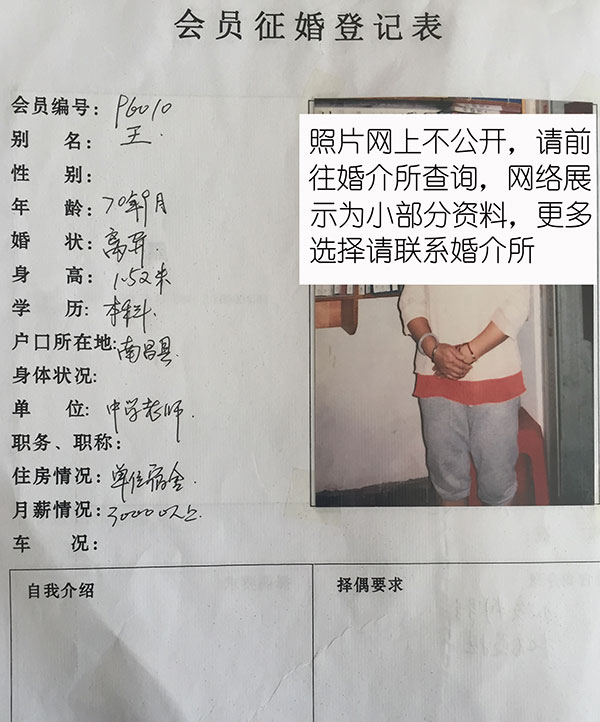 会员征婚登记表
会员编号: PG010
别 名: 王.
性 别:
年 龄: 70年9月
婚 状: 离异
身 高: 1.52米
学 历: 本科.
户口所在地: 南昌县
身体状况:
单 位: 中学老师
职务、职称:
住房情况: 单位宿舍
月薪情况: 3000以上.
车 况:
照片网上不公开，请前
往婚介所查询，网络展
示为小部分资料，更多
选择请联系婚介所
自我介绍
择偶要求